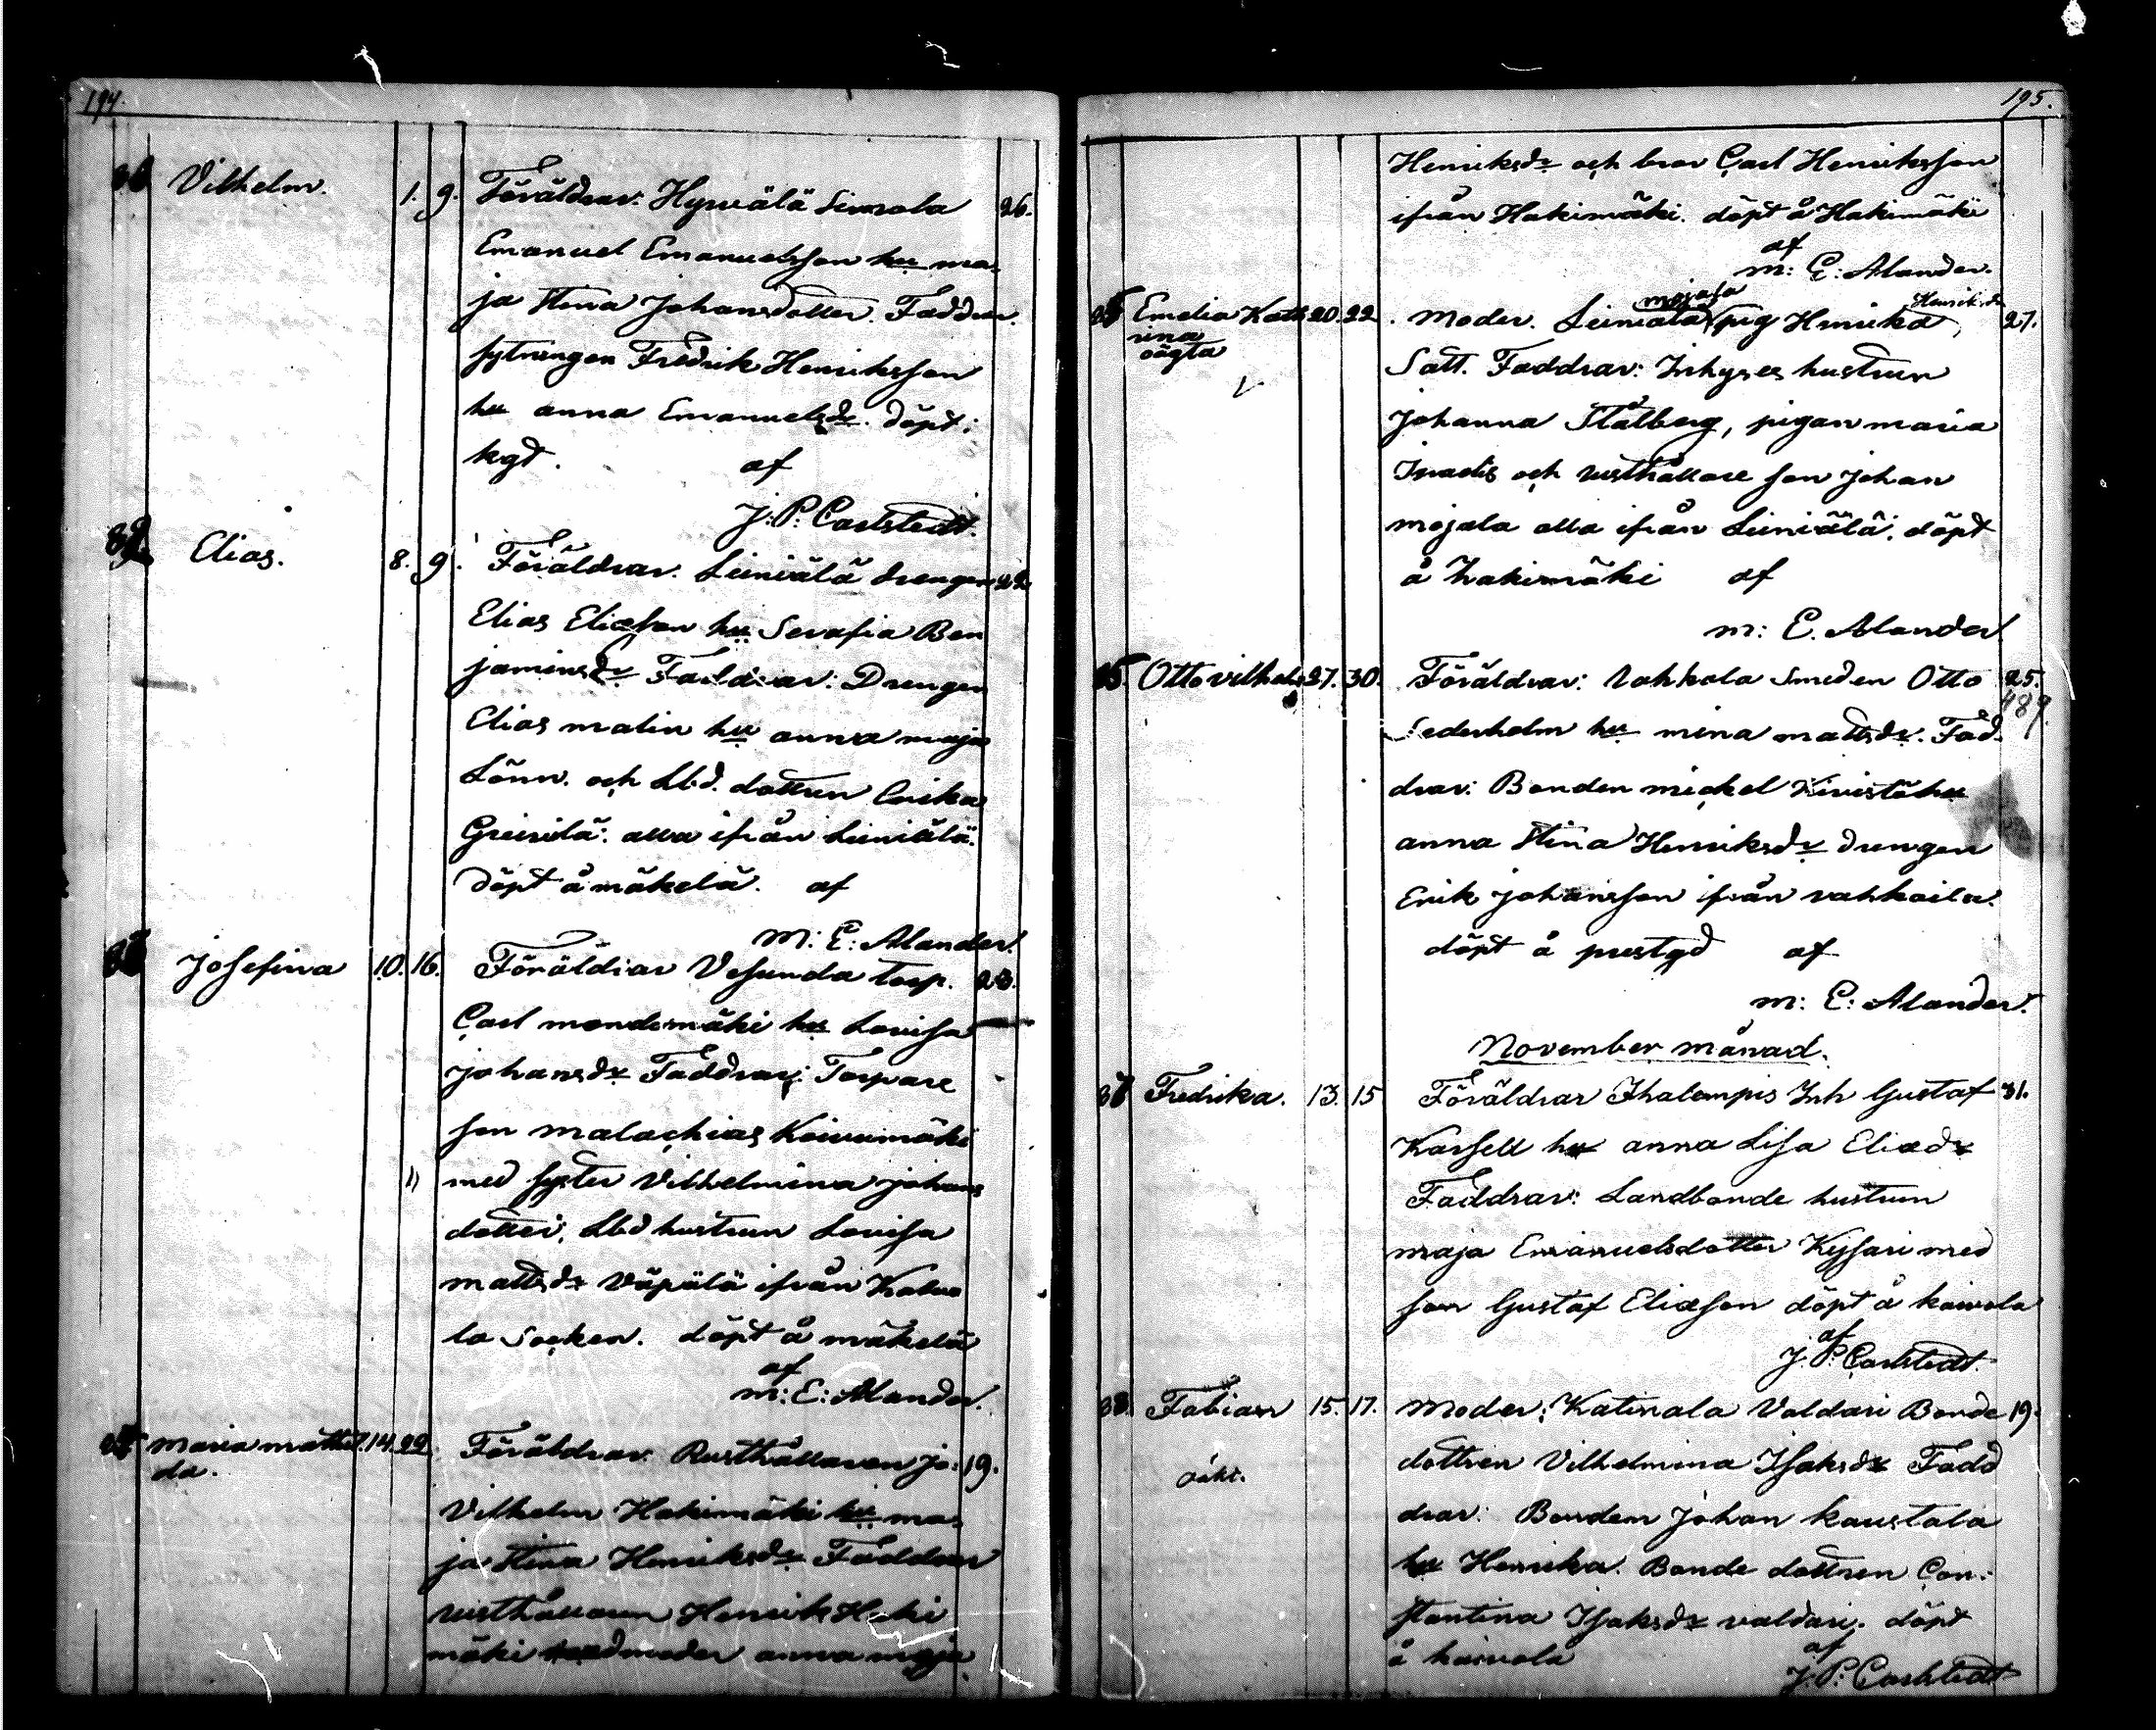 194.
Vilhelm. 1. 9. Föräldrar: Hyrvälä Simola 26.
Emanuel Emanuelsson hu ma,
ja Stina Johansdotter. Faddrar.
sytningen Fredrik Henriksson
hu anna Emanuelsdr. döpt i
kgd. af
J: P: Carlstedt.
Elias. 8. 9. Föräldrar. Leiniälä drengen 22
Elias Eliasson hu Serafia Ben
jaminsdr. Faddrar: Drengen
Elias malin hu anna maja
Lönn. och Lbd. dottren Erika
Greivilä: alla ifrån Leiniälä.
döpt å mäkelä. af
M: E: Alander.
Josefina 10. 16. Föräldrar Vesunda torp. 23.
Carl mondemäki hu Lovisa
johansdr Faddrar: Torpare
son malachias Koivumäki
" med syster Vilhelmina johans
dotter, Lbd hustrun Lovisa
mattsdr Väpälä ifrån Kalvo
la Socken. döpt å mäkelä
af
m: E: Alander.
Maria mathil 14. 22. Föräldrar. Rusthållaren jo: 19.
da.
Vilhelm Hakimäki hu ma,
ja Stina Henriksdr Faddrar
rusthållaren Henrik Haki
mäki moder anna maja
195.
Henriksdr och bror Carl Henriksson
ifrån Hakimäki. döpt å Hakimäki
af
m: E: Alander.
mojala Henriksdr
Emelia Kath 20. 22. Moder. Leiniälä pig Henrika, 27.
rina
oägta
Satt. Faddrar: Inhyses hustrun
Johanna Stålberg, pigan maria
och rusthållare son Johan
mojala alla ifrån Leiniälä. döpt
å hakimäki af
m: E. Alander
Otto vilhelm 27. 30. Föräldrar: Vohkala Smeden Otto 25.
489.
Sederholm hu mina mattsdr. Fad.
drar: Bonden mickel Kivistö hu
anna Stina Henriksdr drengen
Erik johansson ifrån vahkaila.
döpt å prestgd af
m: E: Alander.
November månad.
37 Fredrika. 13. 15 Föräldrar Ihalempis Inh Gustaf 31.
Karsell hu anna Lisa Eliadr
Faddrar: Landbonde hustrun
maja Emanuelsdotter Kysari med
son Gustaf Eliasson döpt å kaivola
af
J. P: Carlstedt.
38. Fabian 15. 17. Moder: Katinala Valdari Bonde 19.
oäkt.
dottren Vilhelmina Isaksdr Fadd
drar: Bonden Johan kaustala
hu Henrika. Bonde dottren Con:
stantina Isaksdr valdari. döpt
å kaivola af
J: P: Carlstedt